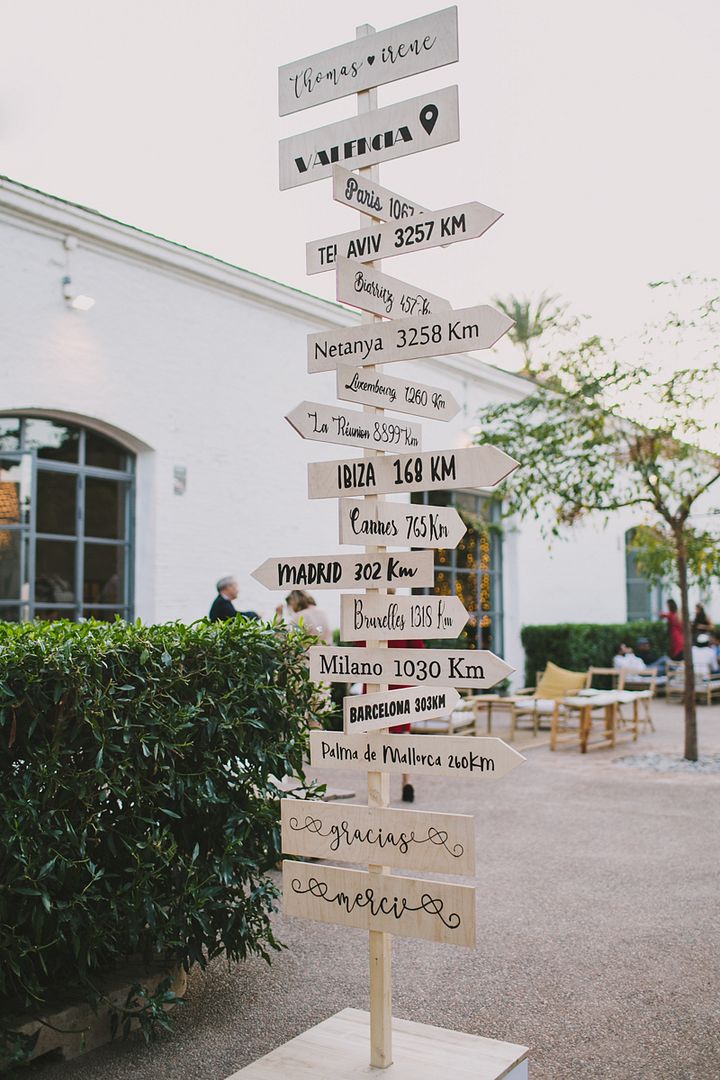 thomas ♥ irene
VALENCIA
Paris 1067
TEL AVIV 3257 KM
Biarritz 457 Km
Netanya 3258 Km
Luxembourg 1260 Km
La Réunion 8899 Km
IBIZA 168 KM
Cannes 765 Km
MADRID 302 Km
Bruxelles 1318 Km
Milano 1030 Km
BARCELONA 303KM
Palma de Mallorca 260Km
gracias
merci